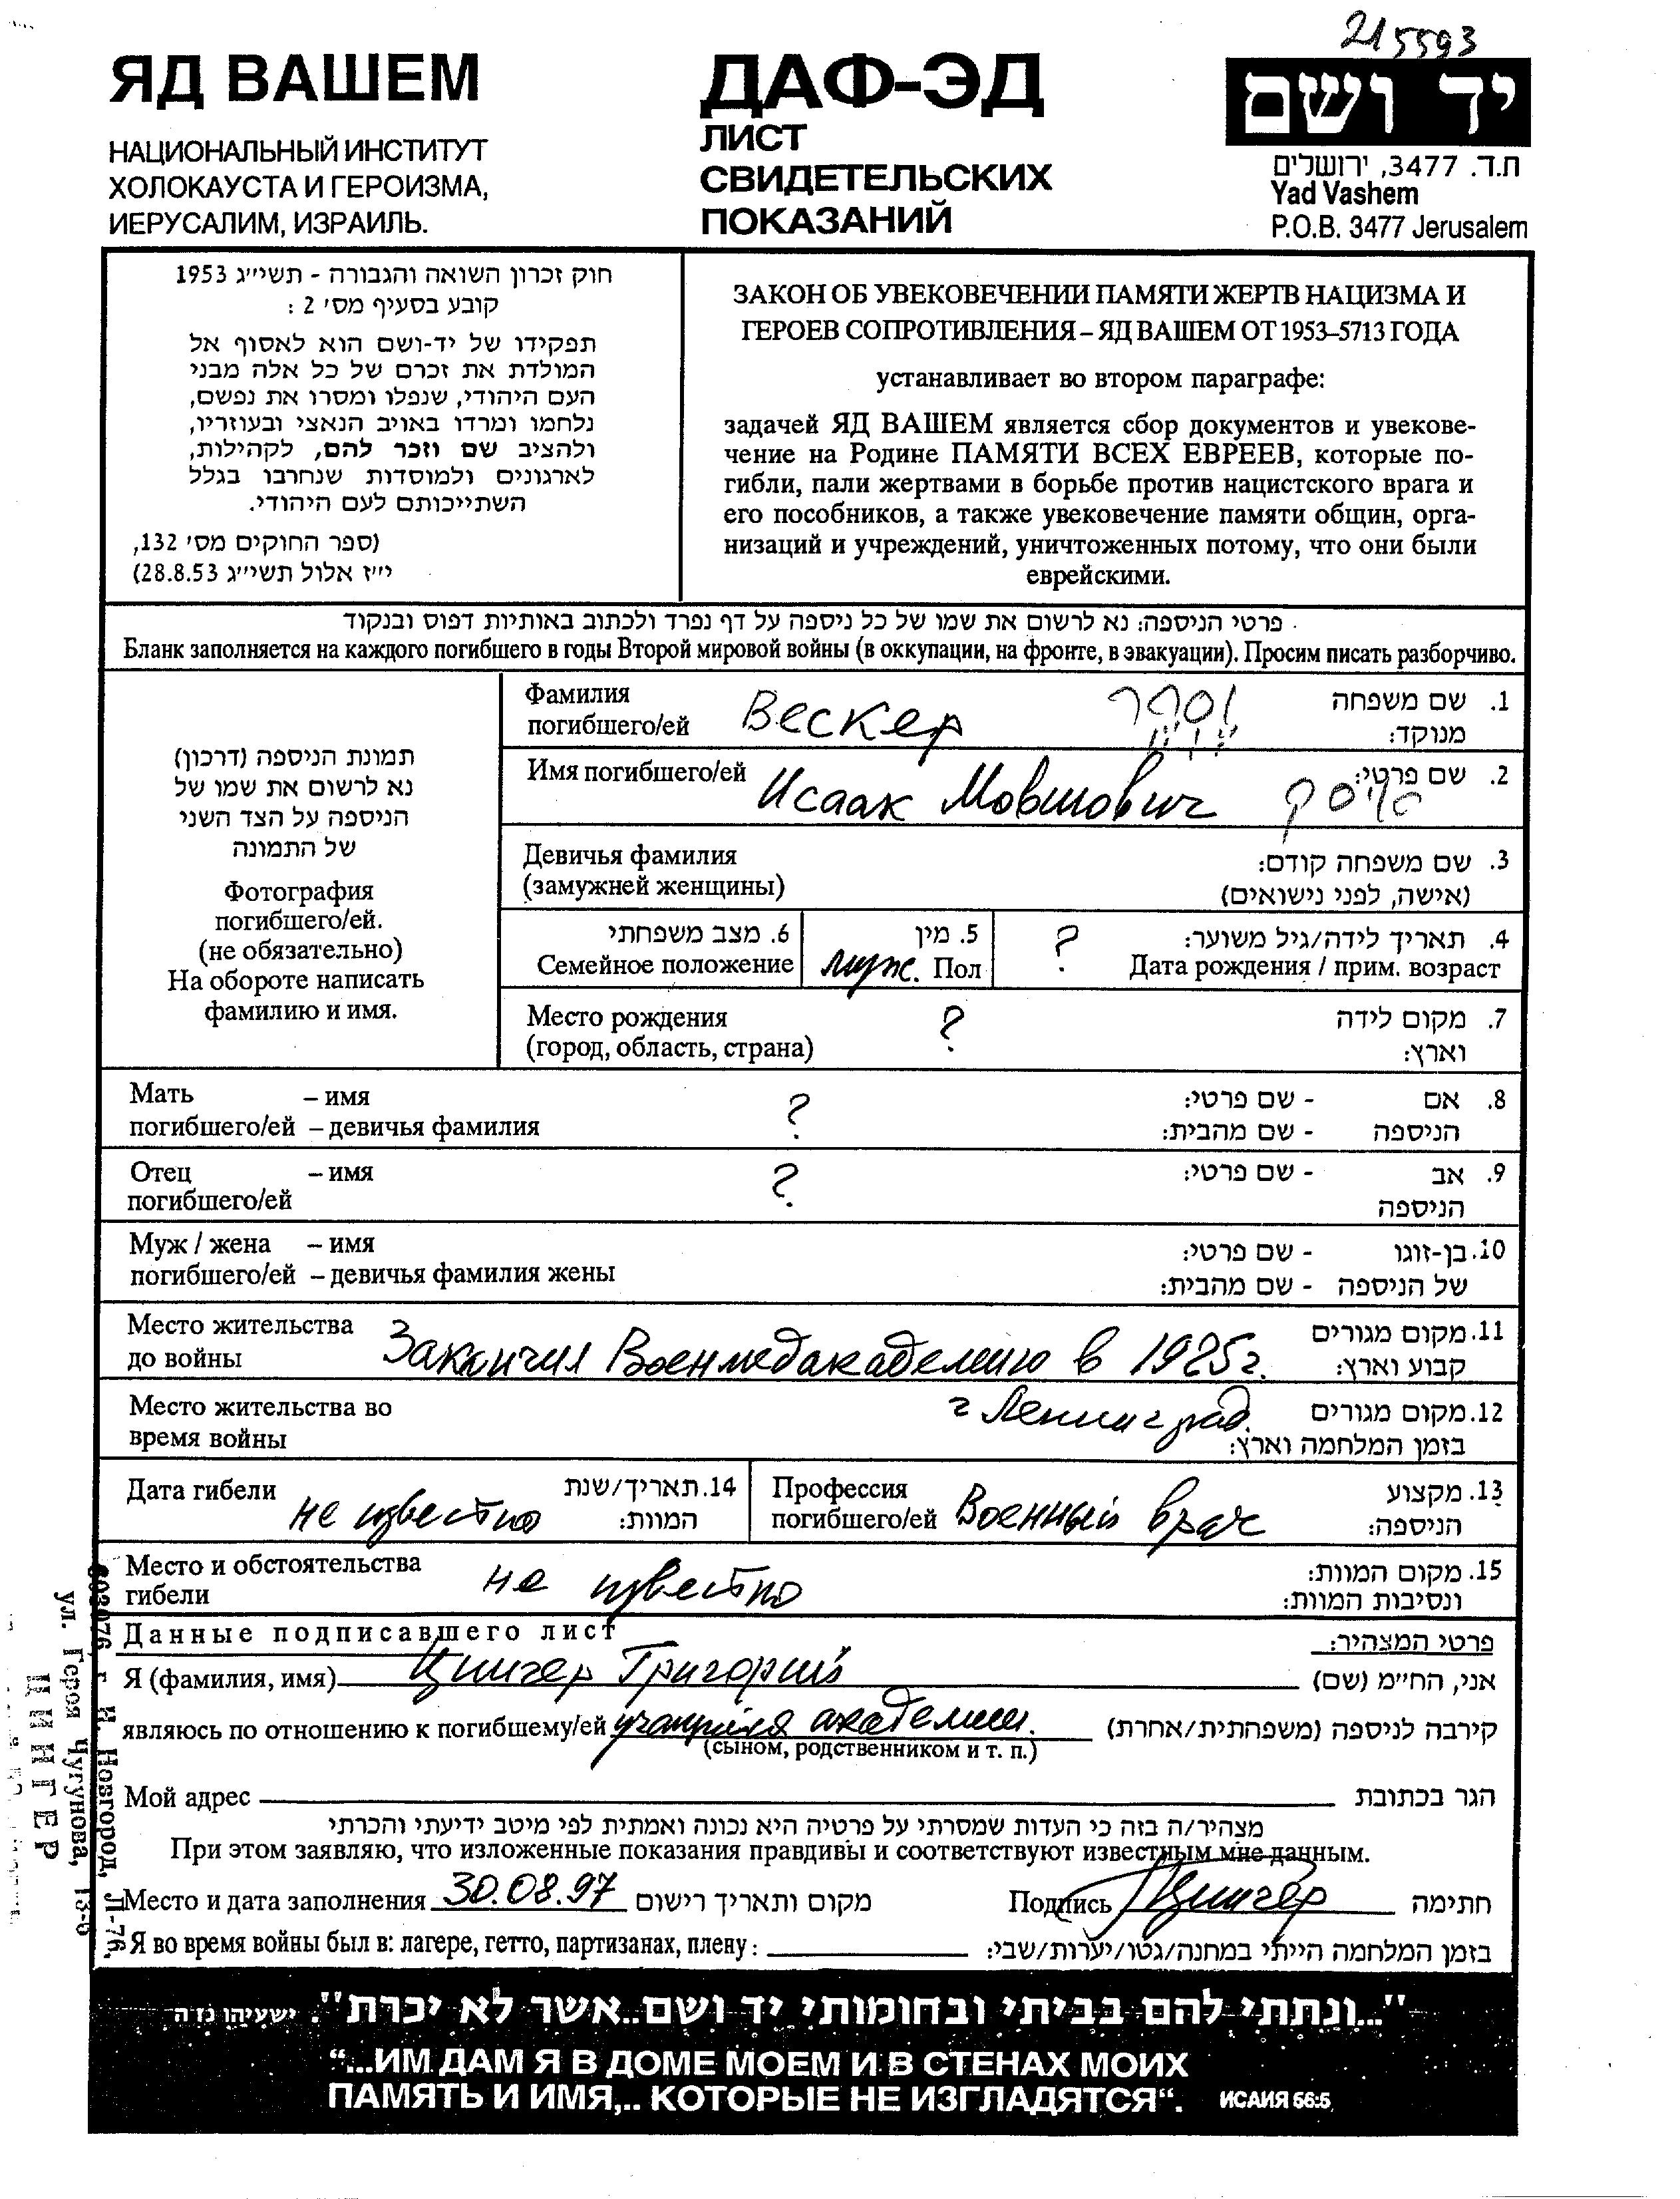 215593
ЯД ВАШЕМ
НАЦИОНАЛЬНЫЙ ИНСТИТУТ
ХОЛОКАУСТА И ГЕРОИЗМА,
ИЕРУСАЛИМ, ИЗРАИЛЬ.
ДАФ-ЭД
ЛИСТ
СВИДЕТЕЛЬСКИХ
ПОКАЗАНИЙ
יד ושם
ת.ד. 3477, ירושלים
Yad Vashem
P.O.B. 3477 Jerusalem
חוק זכרון השואה והגבורה - תשי״ג 1953
קובע בסעיף מס׳ 2 :
תפקידו של יד-ושם הוא לאסוף אל
המולדת את זכרם של כל אלה מבני
העם היהודי, שנפלו ומסרו את נפשם,
נלחמו ומרדו באויב הנאצי ובעוזריו,
ולהציב שם וזכר להם, לקהילות,
לארגונים ולמוסדות שנחרבו בגלל
השתייכותם לעם היהודי.
(ספר החוקים מס׳ 132,
י״ז אלול תשי״ג 28.8.53)
ЗАКОН ОБ УВЕКОВЕЧЕНИИ ПАМЯТИ ЖЕРТВ НАЦИЗМА И
ГЕРОЕВ СОПРОТИВЛЕНИЯ – ЯД ВАШЕМ ОТ 1953–5713 ГОДА
устанавливает во втором параграфе:
задачей ЯД ВАШЕМ является сбор документов и увекове-
чение на Родине ПАМЯТИ ВСЕХ ЕВРЕЕВ, которые по-
гибли, пали жертвами в борьбе против нацистского врага и
его пособников, а также увековечение памяти общин, орга-
низаций и учреждений, уничтоженных потому, что они были
еврейскими.
פרטי הניספה: נא לרשום את שמו של כל ניספה על דף נפרד ולכתוב באותיות דפוס ובנקוד
Бланк заполняется на каждого погибшего в годы Второй мировой войны (в оккупации, на фронте, в эвакуации). Просим писать разборчиво.
תמונת הניספה (דרכון)
נא לרשום את שמו של
הניספה על הצד השני
של התמונה
Фотография
погибшего/ей.
(не обязательно)
На обороте написать
фамилию и имя.
Фамилия
погибшего/ей Вескер וסקר
1. שם משפחה
מנוקד:
Имя погибшего/ей Исаак Мовшович
2. שם פרטי:
Девичья фамилия
(замужней женщины)
3. שם משפחה קודם:
(אישה, לפני נישואים)
6. מצב משפחתי
Семейное положение
5. מין
муж. Пол
4. תאריך לידה/גיל משוער:
? Дата рождения / прим. возраст
Место рождения
(город, область, страна) ?
7. מקום לידה
וארץ:
Мать – имя
погибшего/ей – девичья фамилия ?
8. אם - שם פרטי:
הניספה - שם מהבית:
Отец – имя
погибшего/ей ?
9. אב - שם פרטי:
הניספה
Муж / жена – имя
погибшего/ей – девичья фамилия жены
10. בן-זוגו - שם פרטי:
של הניספה - שם מהבית:
Место жительства
до войны Закончил Военмедакадемию в 1925г.
11. מקום מגורים
קבוע וארץ:
Место жительства во
время войны г Ленинград.
12. מקום מגורים
בזמן המלחמה וארץ:
Дата гибели не известно
14. תאריך/שנת
המוות:
Профессия
погибшего/ей Военный врач
13. מקצוע
הניספה:
Место и обстоятельства
гибели не известно
15. מקום המוות:
ונסיבות המוות:
Данные подписавшего лист
פרטי המצהיר:
Я (фамилия, имя) Цингер Григорий אני, הח״מ (שם)
являюсь по отношению к погибшему/ей академии. קירבה לניספה (משפחתית/אחרת)
(сыном, родственником и т. п.)
Мой адрес הגר בכתובת
מצהיר/ה בזה כי העדות שמסרתי על פרטיה היא נכונה ואמתית לפי מיטב ידיעתי והכרתי
При этом заявляю, что изложенные показания правдивы и соответствуют известным мне данным.
Место и дата заполнения 30.08.97 מקום ותאריך רישום Подпись Цингер חתימה
Я во время войны был в: лагере, гетто, партизанах, плену: בזמן המלחמה הייתי במחנה/גטו/יערות/שבי:
603076, г. Н. Новгород, Л-76,
ул. Героя Чугунова, 13-6
ЦИНГЕР
"...ונתתי להם בביתי ובחומותי יד ושם..אשר לא יכרת". ישעיהו נו ה
“...ИМ ДАМ Я В ДОМЕ МОЕМ И В СТЕНАХ МОИХ
ПАМЯТЬ И ИМЯ,.. КОТОРЫЕ НЕ ИЗГЛАДЯТСЯ“. ИСАИЯ 56:5